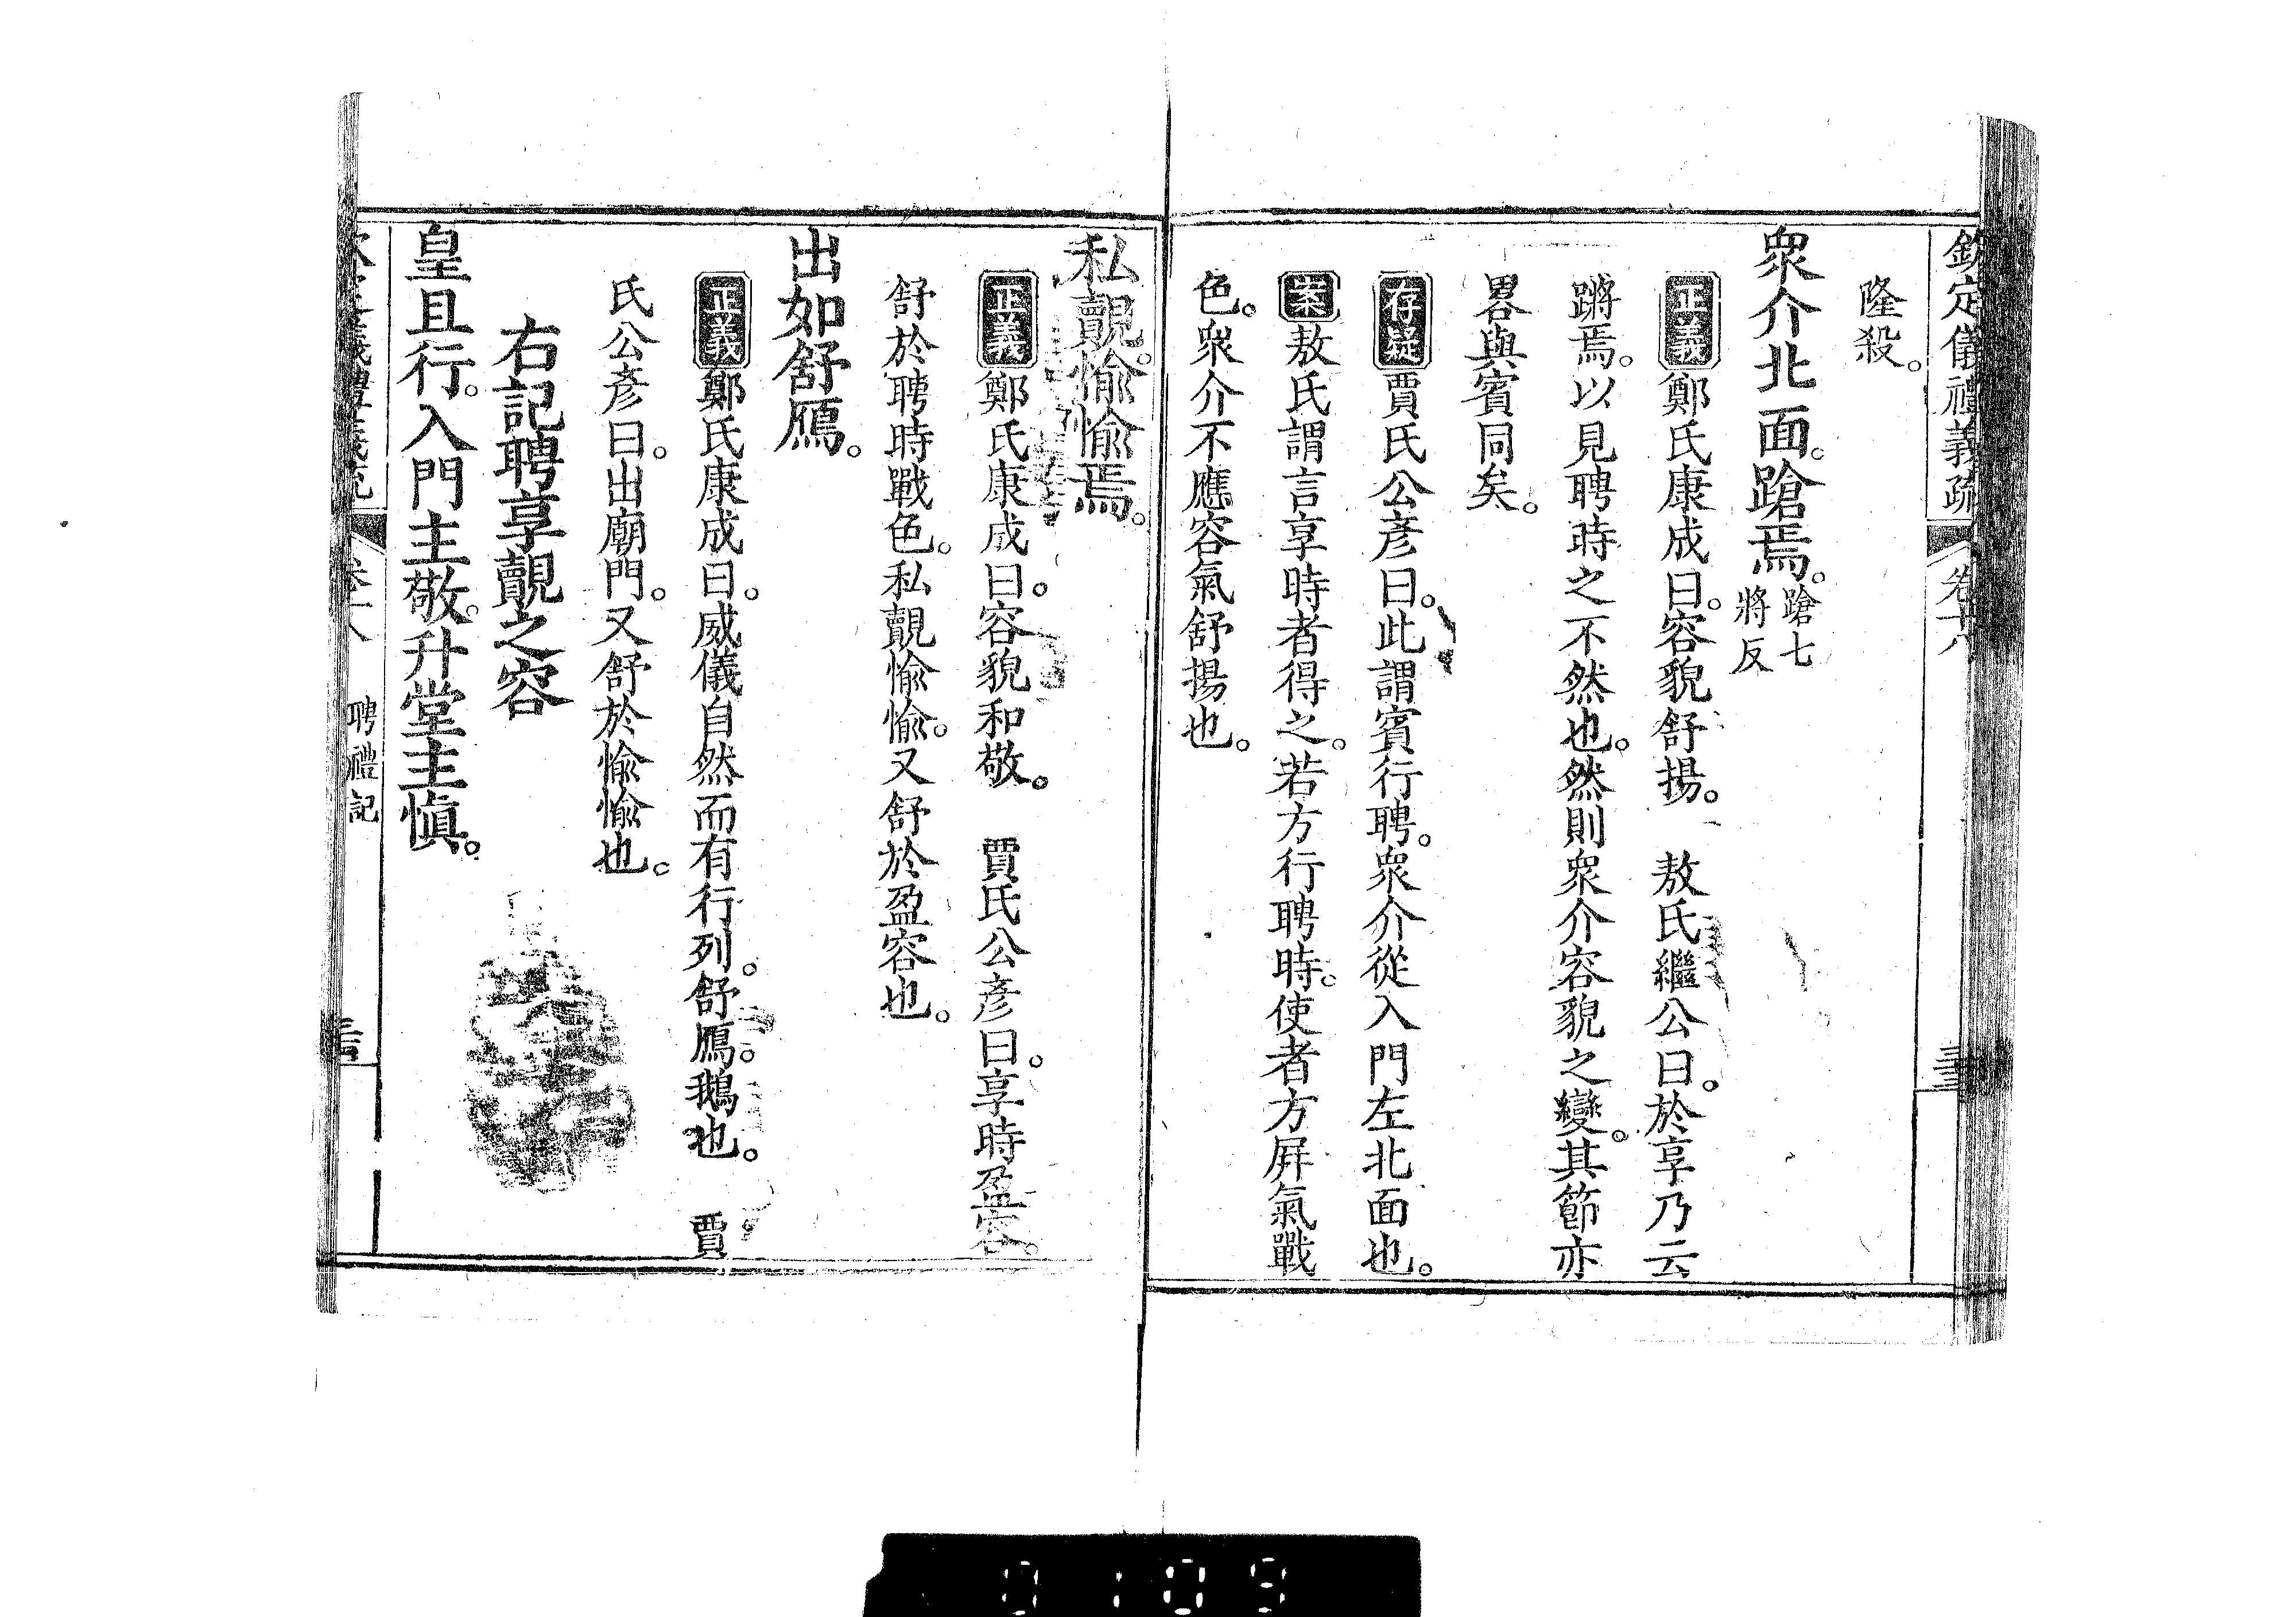 欽定儀禮義疏 卷十八
隆殺。
衆介北面。蹌焉。蹌七將反
正義鄭氏康成曰。容貌舒揚。 敖氏繼公曰。於享乃云
蹡焉。以見聘時之不然也。然則衆介容貌之變。其節亦
畧與賓同矣。
存疑賈氏公彥曰。此謂賓行聘。衆介從入門左北面也。
案敖氏謂言享時者得之。若方行聘時。使者方屏氣戰
色。衆介不應容氣舒揚也。
私覿。愉愉焉。
正義鄭氏康成曰。容貌和敬。 賈氏公彥曰。享時盈容。
舒於聘時戰色。私覿愉愉。又舒於盈容也。
出如舒鴈。
正義鄭氏康成曰。威儀自然而有行列。舒鴈。鵝也。 賈
氏公彥曰。出廟門。又舒於愉愉也。
右記聘享覿之容
皇且行。入門主敬。升堂主愼。
聘禮記